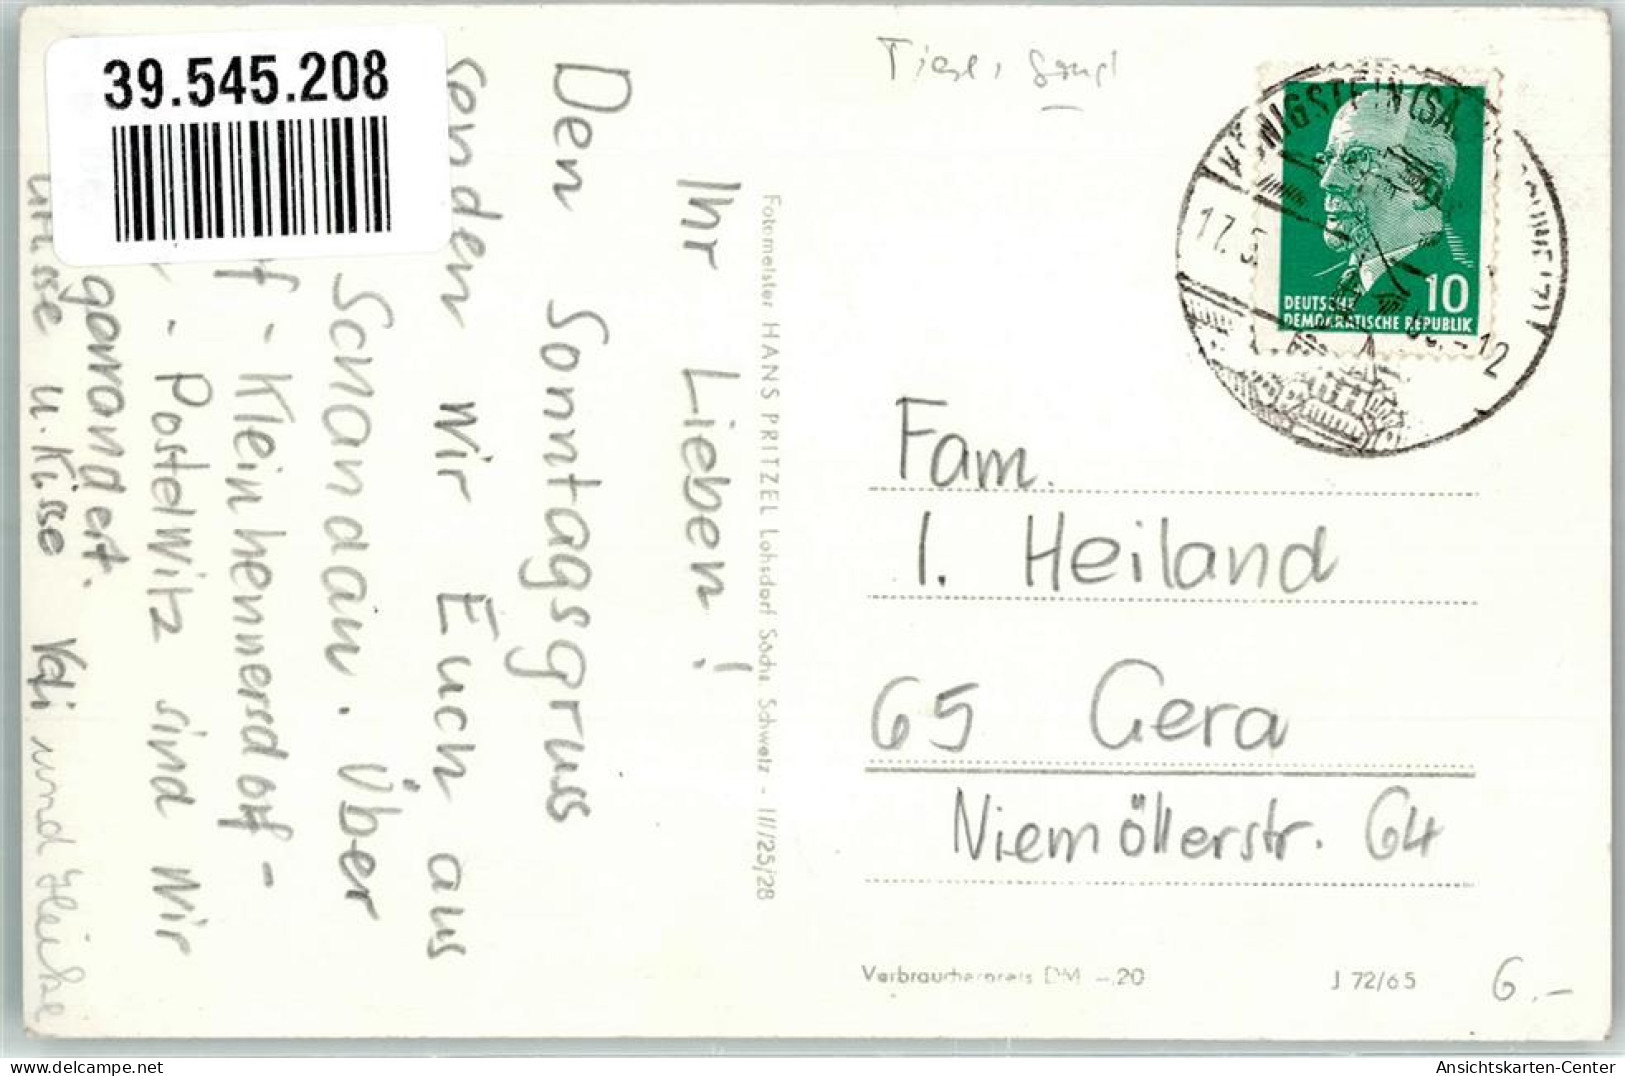 39.545.208
Ihr Lieben!
Den Sonntagsgruss
senden wir Euch aus
Schandau. Über
f - Kleinhennersdorf -
. Postelwitz sind wir
gewandert.
u. Küsse Vati und Heike
Fotomeister HANS PRITZEL Lohsdorf Sächs. Schweiz - III/25/28
KÖNIGSTEIN (SÄ
17.
12
10
DEUTSCHE
DEMOKRATISCHE REPUBLIK
Fam.
I. Heiland
65 Gera
Niemöllerstr. 64
Verbraucherpreis DM -.20
J 72/65
6.-
AnsichtskartenCenter